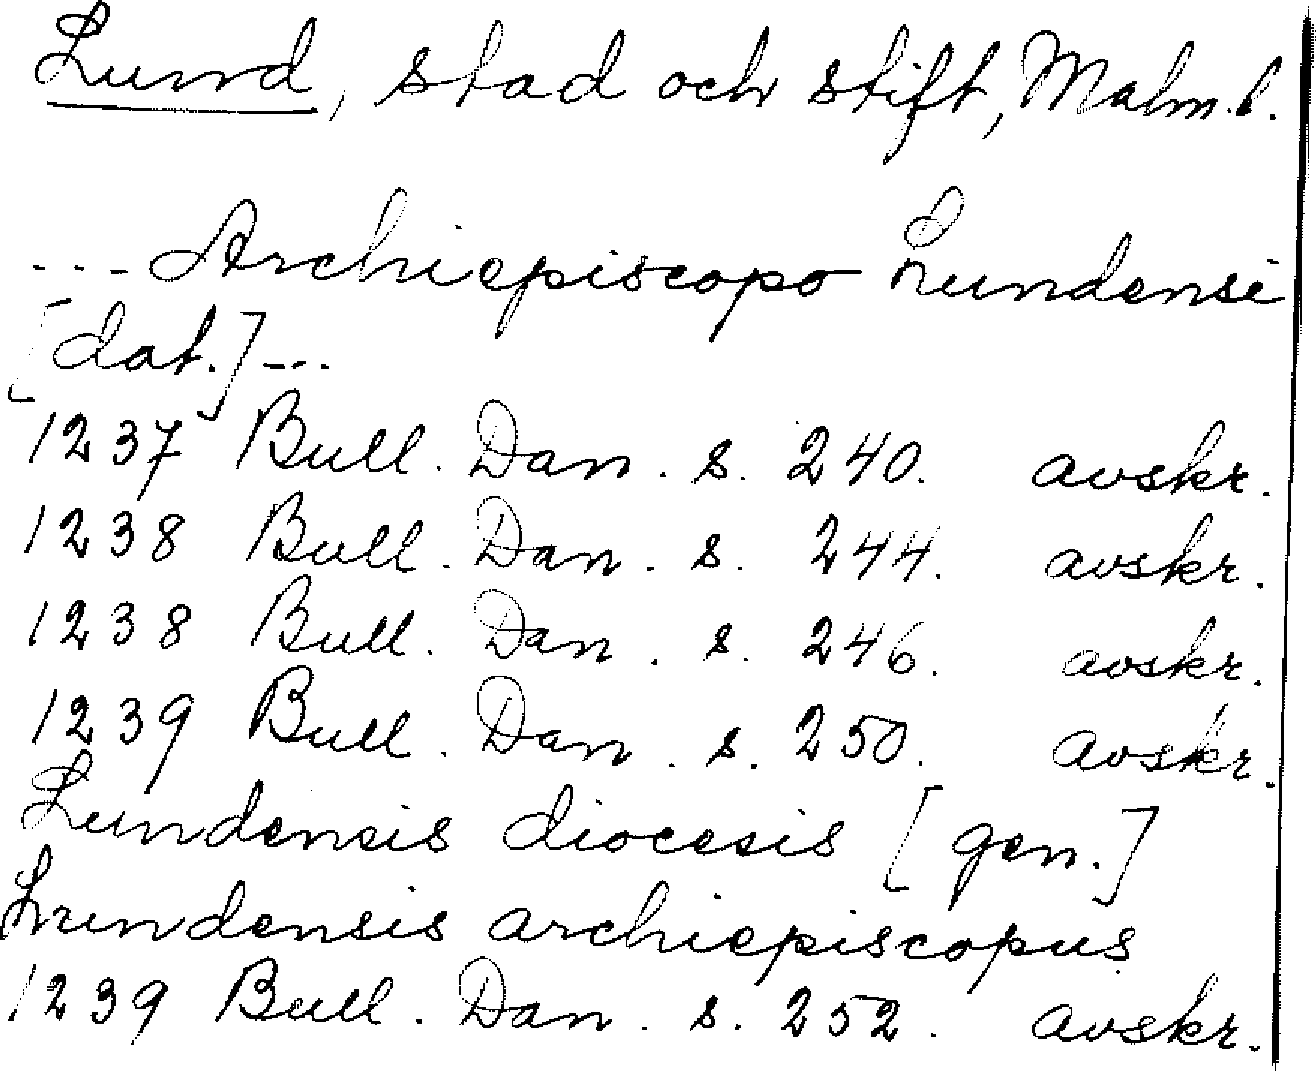 Lund, stad och stift, Malm.l.
--- Archiepiscopo Lundensi
[dat.]---
1237 Bull. Dan. s. 240. avskr.
1238 Bull. Dan. s. 244. avskr.
1238 Bull. Dan. s. 246. avskr.
1239 Bull. Dan. s. 250. avskr.
Lundensis diocesis [gen.]
Lundensis archiepiscopus
1239 Bull. Dan. s. 252. avskr.